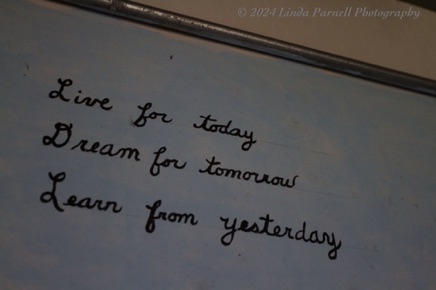 © 2024 Linda Parnell Photography
Live for today
Dream for tomorrow
Learn from yesterday